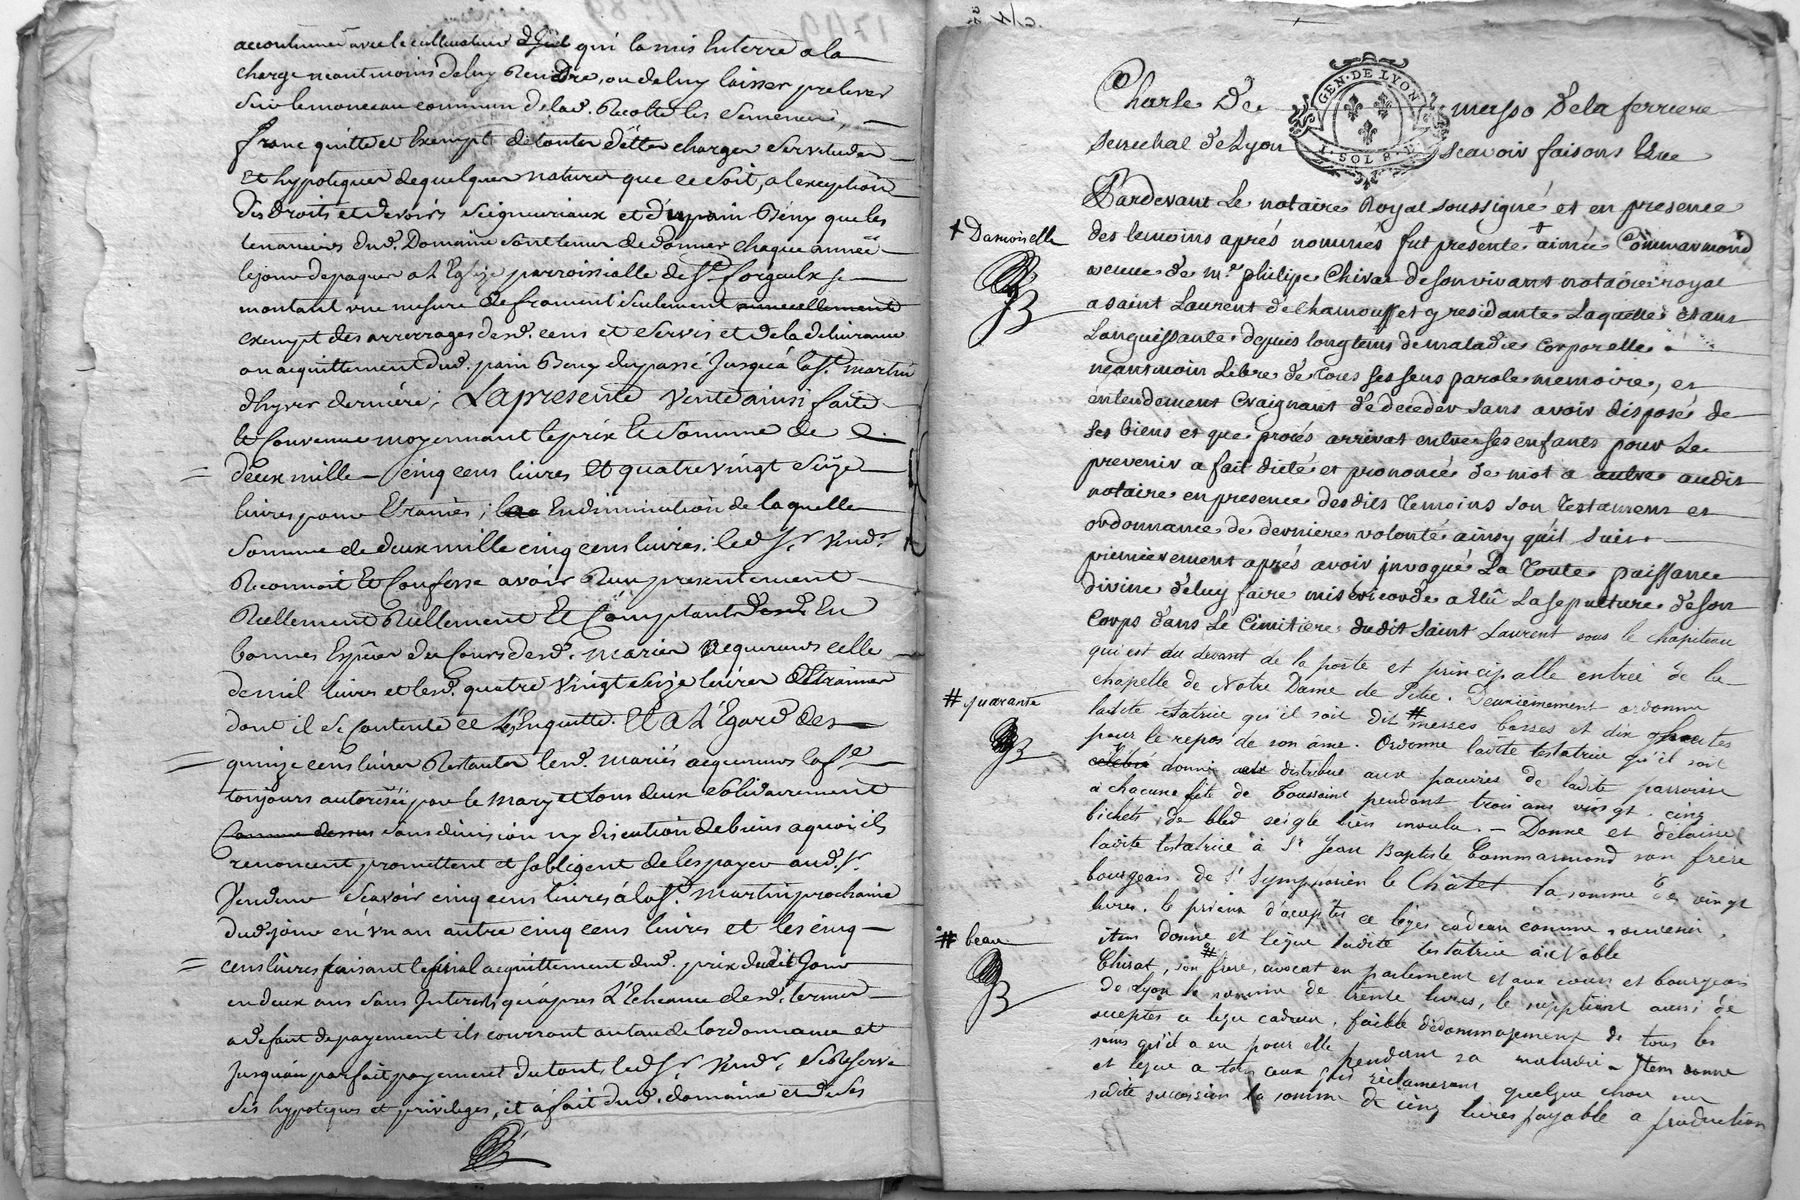 accoutumée avec le cultivateur d'Icel qui la mis Enterre a la
charge neantmoins de luy Rendre, ou de luy laisser prelever
sur le monceau commun de lad. Recolte les Semences,
franc quitte et Exempt de toutes dettes charges Servitudes
et hypoteques de quelques natures que ce soit, a l'exception
des droits et devoirs Seigneuriaux et d'un pain Beny que les
tenanciers dud. Domaine sont tenus de donner chaque année
le jour de paques a L'Eglise parroissialle de St. forgeulx se
montant une mesure de froment seulement annuellement
exempt des arrerages desd. cens et Servis et de la delivrance
ou acquittement dud. pain Beny du passé Jusqu'a la St. martin
d'hyver derniere; La presente vente ainsi faite
et Convenue moyennant le prix et Somme de
= deux mille cinq cens livres et quatre vingt seize
livres pour Etraines; En diminution de laquelle
Somme de deux mille cinq cens livres. led. Sr. Vendr.
Reconnoit et Confesse avoir Reçu presentement
Reellement et Comptant En
bonnes Espèces du Cours desd. mariés acqureurs celle
de mil livres et lesd. quatre vingt seize livres d'Etraines
dont il se Contente et les Enquitte. Et a L'Egard des
= quinze cens livres Restantes lesd. mariés acqureurs la fe.
toujours autorisée par le mary et tous deux solidairement
Comme dessus sans division ny discution de biens a quoi ils
renoncent promettent et s'obligent de les payer aud. Sr.
Vendeur Scavoir cinq cens livres à la St. Martin prochaine
dud. jour en un an autre cinq cens livres et les cinq
= cens livres faisant le final acquittement dud. prix dudit Jour
en deux ans sans Interests qu'apres L'Echeance desd. termes
a defaut de payement ils courront au taux de l'ordonnance et
Jusqu'au parfait payement du tout, led. Sr. Vendr. se Reserve
ses hypoteques et privileges, et a fait dud. domaine et de ses
GEN. DE LYON
1. SOL 8. D.
Charle De masso De la ferriere
Senechal de Lyon scavoir faisons Que
Pardevant Le notaire Royal soussigné et en presence
+ Damoiselle
des temoins aprés nommés fut presente + aimée Commarmond
veuve de me. philipe Chirat de son vivant notaire royal
a saint Laurent de Chamousset y residante, Laquelle étant
Languissante depuis longtems de maladie corporelle
neantmoin Libre de tous ses sens parole memoire, et
entendement craignant de deceder sans avoir disposé de
ses biens et que procés arrivat entre ses enfants pour Le
prevenir a fait dicté et prononcé de mot a autre audit
notaire en presence desdits temoins son testament et
ordonnance de derniere volonté ainsy qu'il suit
premierement aprés avoir invoqué La toute puissance
divine de luy faire misericorde a Elû La sepulture de son
Corps dans Le Cimitiere dudit Saint Laurent sous le chapiteau
qui est au devant de la porte et principalle entrée de la
chapelle de Notre Dame de Pitié. Deuxiemement ordonne
# quarante
ladite testatrice qu'il soit dit # messes basses et dix grandes
pour le repos de son âme. Ordonne ladite testatrice qu'il soit
donné distribué aux pauvres de ladite parroisse
à chacune fête de Toussaint pendant trois ans vingt cinq
bichets de bled seigle bien moulu. - Donne et délaisse
ladite testatrice à Sr Jean Baptiste Commarmond son frère
bourgeois de St Symphorien le Châtel la somme de vingt
livres, le priant d'accepter ce legs cadeau comme souvenir.
# beau
item donne et lègue ladite testatrice à Noble
Chirat, son # frere, avocat en parlement et aux cours et bourgeois
de Lyon la somme de trente livres, le suppliant aussi de
accepter ce legs cadeau, faible dédommagement de tous les
soins qu'il a eu pour elle pendant sa maladie - Item donne
et lègue a tous ceux qui réclameront quelque chose sur
sadite succession la somme de cinq livres payable a production